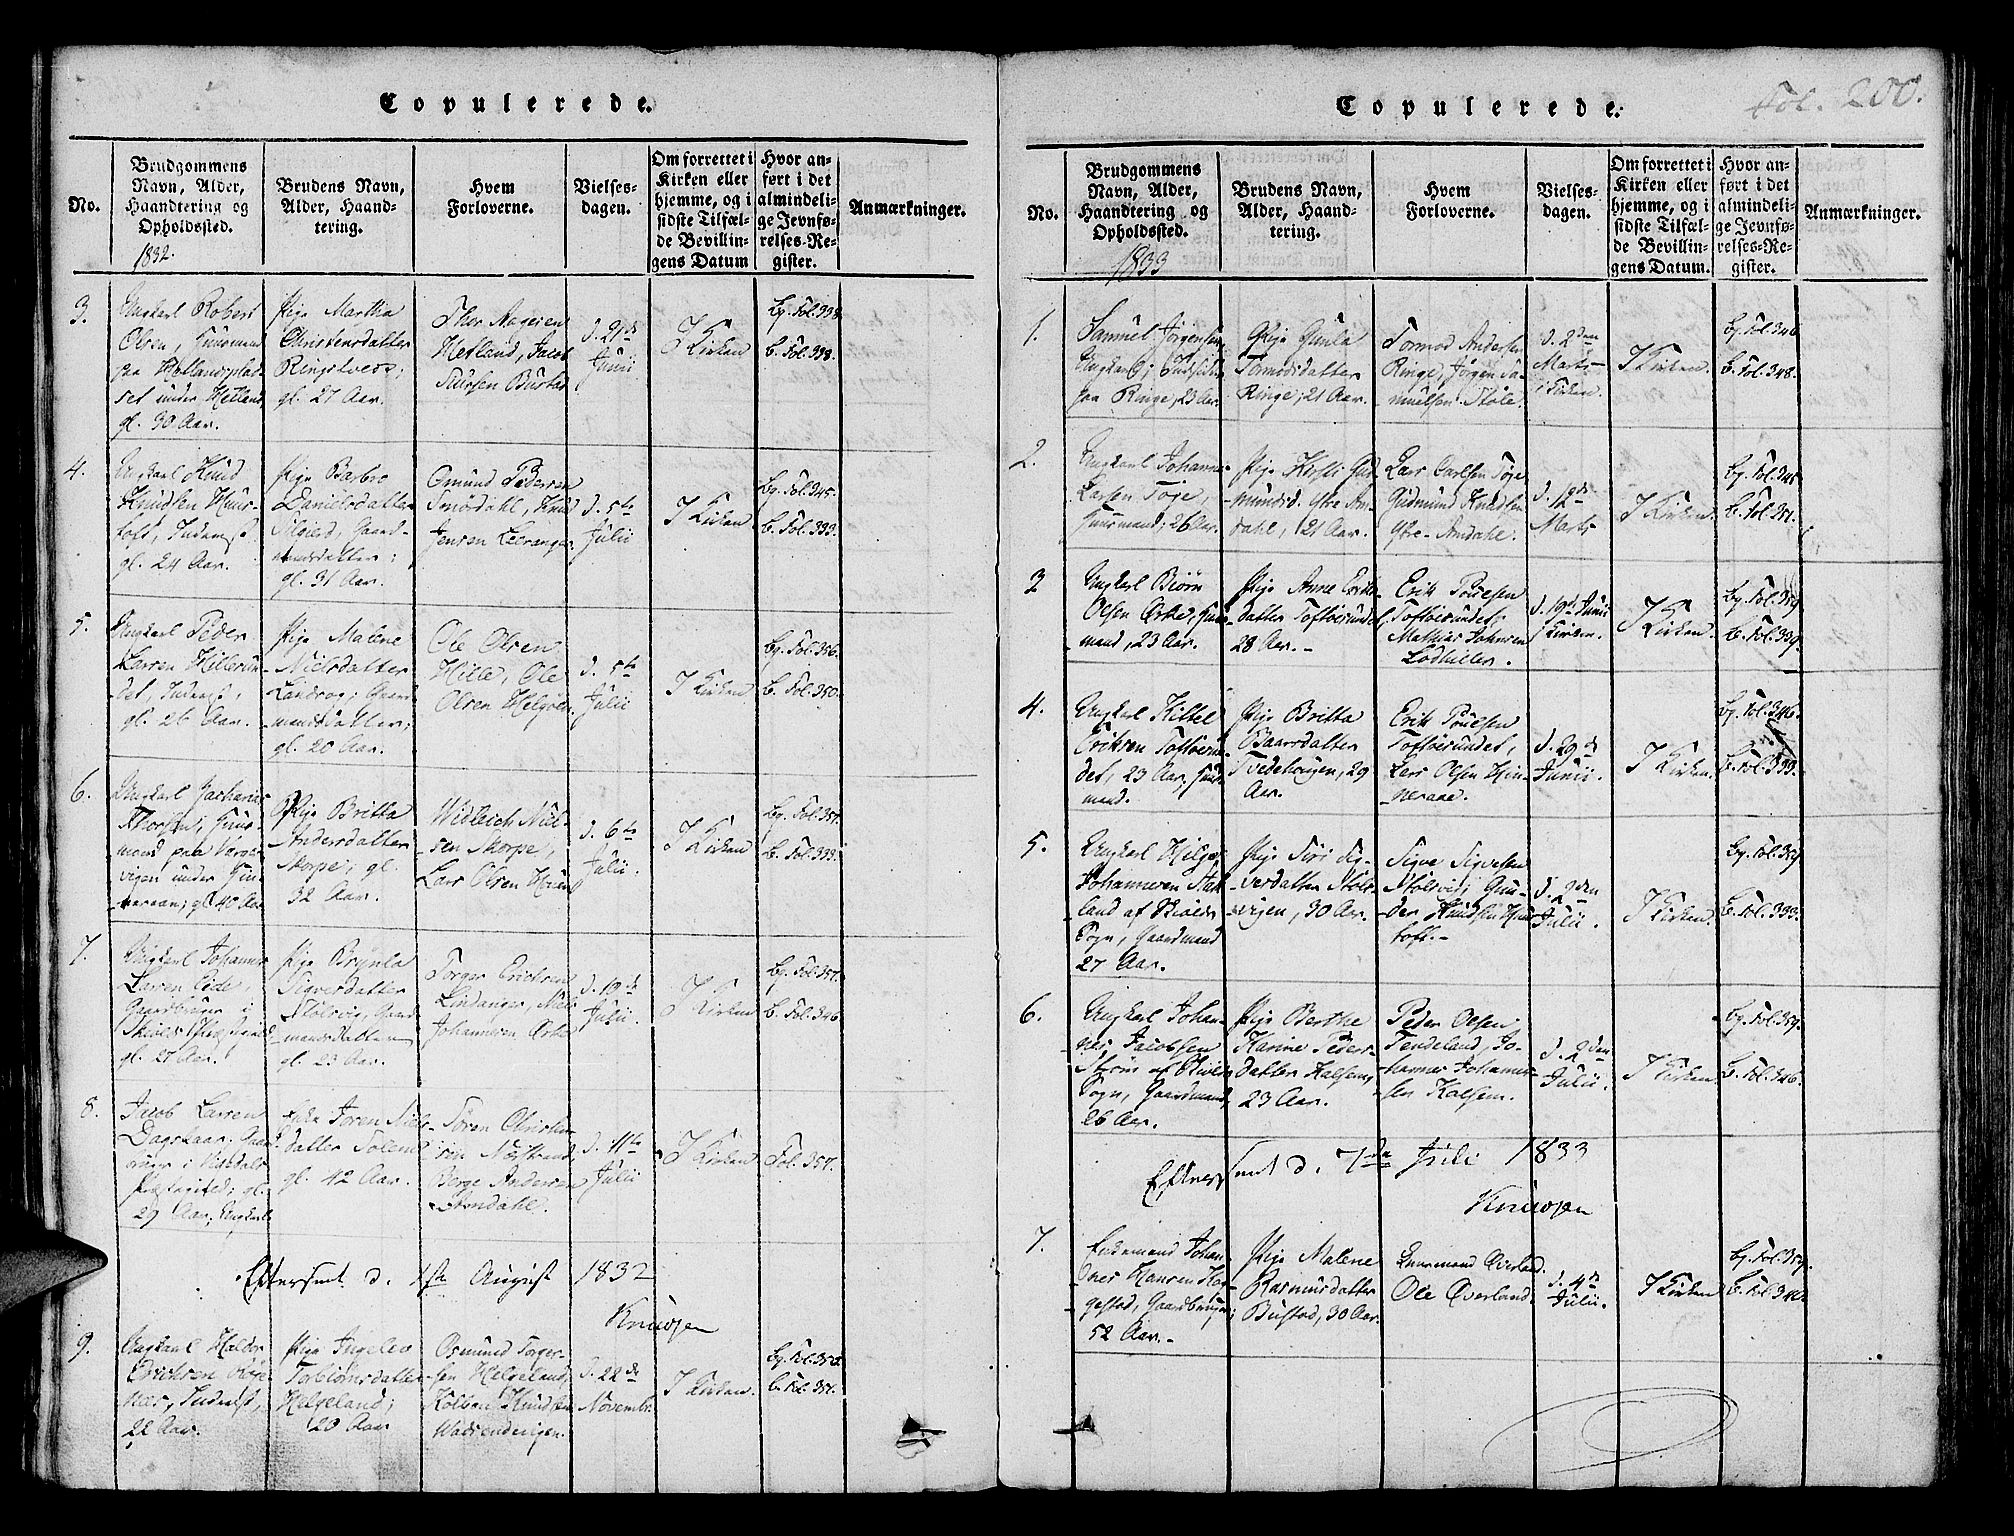 Copulerede.
No.
Brudgommens
Navn, Alder,
Haandtering og
Opholdssted.
1832.
Brudens Navn,
Alder, Haand-
tering.
Hvem
Forloverne.
Vielses-
dagen.
Om forrettet i
Kirken eller
hjemme, og i
sidste Tilfæl-
de Bevillin-
gens Datum
Hvor an-
ført i det
almindeli-
ge Jevnfø-
relses-Re-
gister.
Anmærkninger.
3.
Ungkarl Robert
Olsen, Huusmand
paa Hetlandsplad-
set under Hetland,
gl. 30 Aar.
Pige Martha
Christensdatter
gl. 27 Aar.
Thor Aageien
Hetland, Jacob
Bustad
d. 21de
Junii
I Kirken
bg. Fol. 338.
b. Fol. 338.
4.
Ungkarl Knud
Knudsen Huus-
toft, Inderst,
gl. 24 Aar.
Pige Barbro
Danielsdatter
Gaard-
mandsdatter;
gl. 31 Aar.
Omund Pedersen
Smødahl, Knud
Jensen Leeranger.
d. 5te
Julii
I Kirken
bg. Fol. 345.
b. Fol. 333.
5.
Ungkarl Peder
Larsen Hillesun-
det, Inderst,
gl. 26 Aar.
Pige Malene
Nielsdatter
Landrog; Gaard-
mandsdatter;
gl. 20 Aar.
Ole Olsen
Hille, Ole
Olsen Helgøen.
d. 5te
Julii
I Kirken
bg. Fol. 356.
b. Fol. 350.
6.
Ungkarl Zacharias
Thorsen, Huus-
mand paa
vigen under Hin-
neraae; gl. 40 Aar
Pige Britta
Andersdatter
Skorpe, gl.
32 Aar.
Widleich Niel-
sen Skorpe,
Lars Olsen
d. 6te
Julii.
I Kirken
bg. Fol. 357.
b. Fol. 333.
7.
Ungkarl Johannes
Larsen Eide,
Gaardbruger i
gl. 27 Aar.
Pige Brynla
Sigversdatter
Stolsvig, Gaard-
mandsdatter
gl. 23 Aar.
Torger Erichsen
Lindanger, Niels
Johannesen
d. 19de
Julii.
I Kirken
bg. Fol. 357.
b. Fol. 346.
8.
Jacob Larsen
Dagskaar, Gaard-
bruger i
Præstegield; gl.
29 Aar; Ungkarl
Enke Søren Niels-
datter Solem
gl. 42 Aar.
Søren Christen-
sen Nøstrand,
Berge Andersen
Amdahl.
d. 11te
Julii
I Kirken
Fol. 357.
Efterseet d. 1ste August 1832
Knudsen
9.
Ungkarl Haldor
Erichsen
nes, Inderst,
22 Aar.
Pige Ingelev
Torbiørnsdatter
Helgeland;
20 Aar
Osmund Torger-
sen Helgeland,
Kolben Knudsen
d. 22de
Novembr.
I Kirken.
bg. Fol. 358.
b. Fol. 351.
Copulerede.
Fol. 200.
No.
Brudgommens
Navn, Alder,
Haandtering og
Opholdssted.
1833
Brudens Navn,
Alder, Haand-
tering.
Hvem
Forloverne.
Vielses-
dagen.
Om forrettet i
Kirken eller
hjemme, og i
sidste Tilfæl-
de Bevillin-
gens Datum.
Hvor an-
ført i det
almindeli-
ge Jevnfø-
relses-Re-
gister.
Anmærkninger.
1.
Samuel Jørgensen
Ungkarl,
paa Ringe, 23 Aar.
Pige Gunla
Tormodsdatter
Ringe, 21 Aar.
Tormod Andersen
Ringe, Jørgen Sa-
muelsen Støle.
d. 2den
Marts
i Kirken.
I Kirken.
bg. Fol. 346
b. Fol. 348.
2.
Ungkarl Johannes
Larsen Toje,
Huusmand, 26 Aar.
Pige Kirsti Gud-
mundsd. Øfre Am-
dahl, 21 Aar.
Lars Carlsen Toje
Gudmund Knudsen
Øfre-Amdahl.
d. 12te
Marts
I Kirken.
bg. Fol. 345
b. Fol. 351.
3
Ungkarl Biørn
Olsen Huus-
mand, 23 Aar.
Pige Anne Eriks-
datter Toftøesundet,
28 Aar.
Erik Povelsen
Toftøesundet,
Mathias Johnsen
Lodhiller.
d. 19de Junii
i Kirken.
I Kirken.
bg. Fol. 359
b. Fol. 339.
4.
Ungkarl Kittel
Eriksen Toftøesun-
det, 23 Aar, Huus-
mand.
Pige Britta
Baarsdatter
Tvedehougen, 29
Aar.
Erik Povelsen
Toftøesundet,
Lars Olsen Hin-
neraae.
d. 29de
Junii.
I Kirken.
bg. Fol. 346.
b. Fol. 333.
5.
Ungkarl Helge
Johannesen
land af Skiolds
Sogn, Gaardmand
27 Aar.
Pige Siri Sig-
versdatter Stols-
vigen, 30 Aar.
Sigve Sigvesen
Stolsvig; Gun-
der Knudsen Huus-
toft.
d. 2den
Julii.
I Kirken.
bg. Fol. 359
b. Fol. 333.
6.
Ungkarl Johan-
nes Jacobsen
Sogn, Gaardmand,
26 Aar.
Pige Berthe
Karine Peders-
datter Kalsem,
23 Aar.
Peder Olsen
Tendeland, Jo-
hannes Johannes-
sen Kalsem.
d. 2den
Julii.
I Kirken
bg. Fol. 359.
b. Fol. 346.
Efterseet d. 7de Juli 1833
Knudsen
7.
Enkemand Johan-
nes Hansen Hag-
gestad, Gaardbruger;
52 Aar.
Pige Malene
Rasmusdatter
Bustad, 30 Aar
Gunrmand Øverland.
Ole Øverland.
d. 4de
Julii.
I Kirken
bg. Fol. 359.
b. Fol. 340